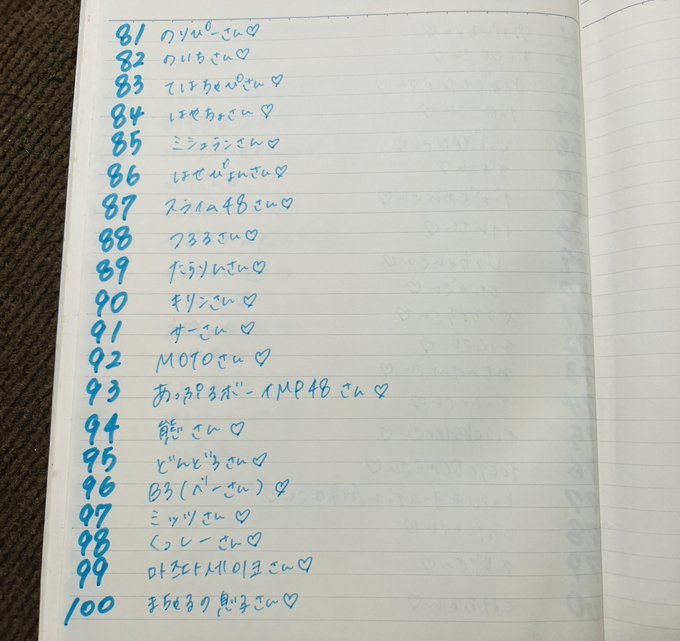 81 のりぴーさん♡
82 のいちさん♡
83 てはちゃぴさん♡
84 はせちょさん♡
85 ミシュランさん♡
86 はせぴょんさん♡
87 スライム48さん♡
88 つるるさん♡
89 たらりんさん♡
90 キリンさん♡
91 サーさん♡
92 MOTOさん♡
93 あっぷるボーイMP48さん♡
94 熊さん♡
95 どんどろさん♡
96 B3(べーさん)♡
97 ミッツさん♡
98 くっしーさん♡
99 마츠다세이코さん♡
100 まちゃるの息子さん♡